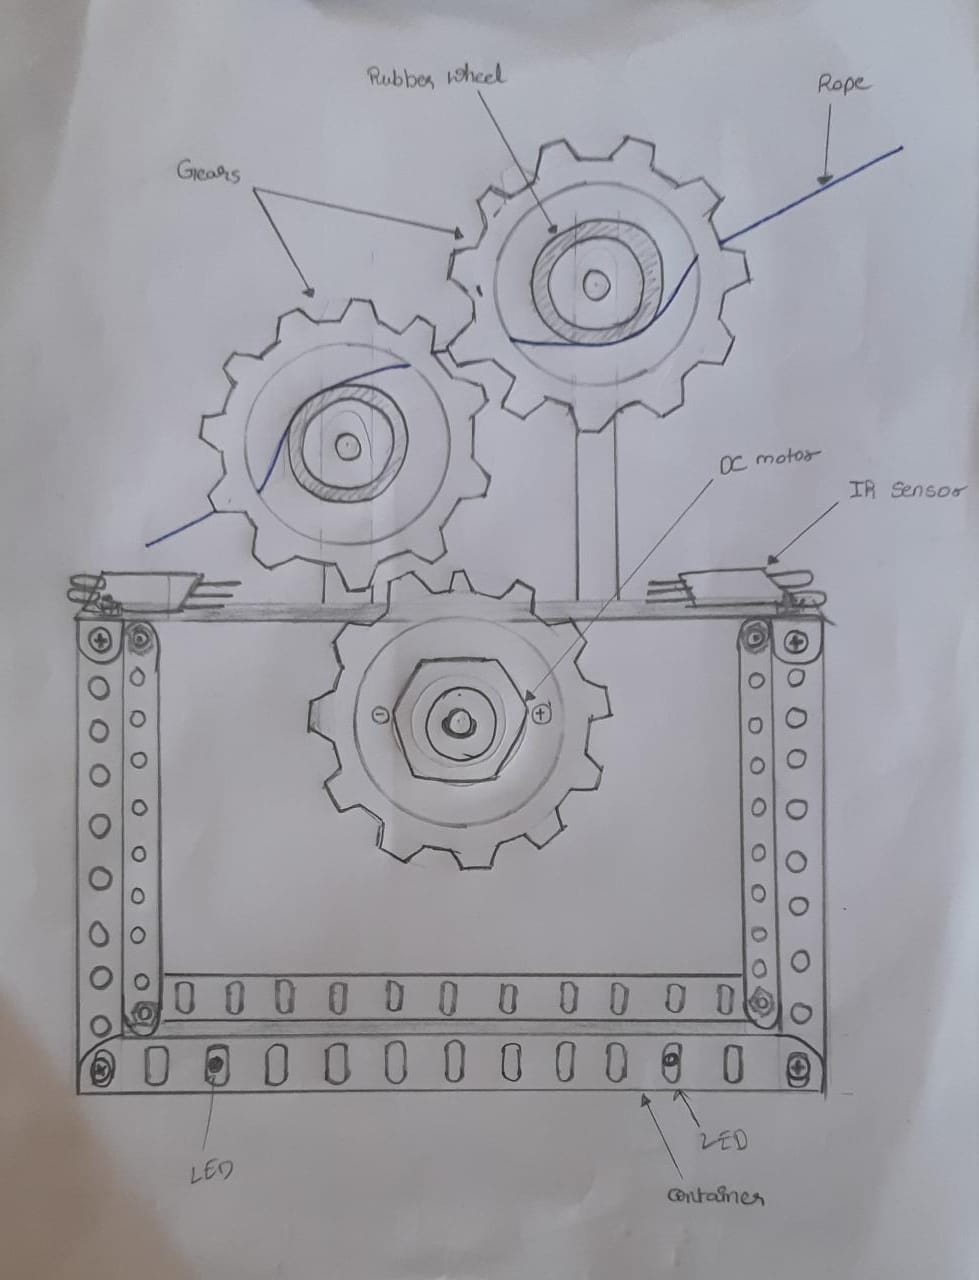 Rubber wheel
Rope
Gears
DC motor
IR Sensor
LED
LED
container